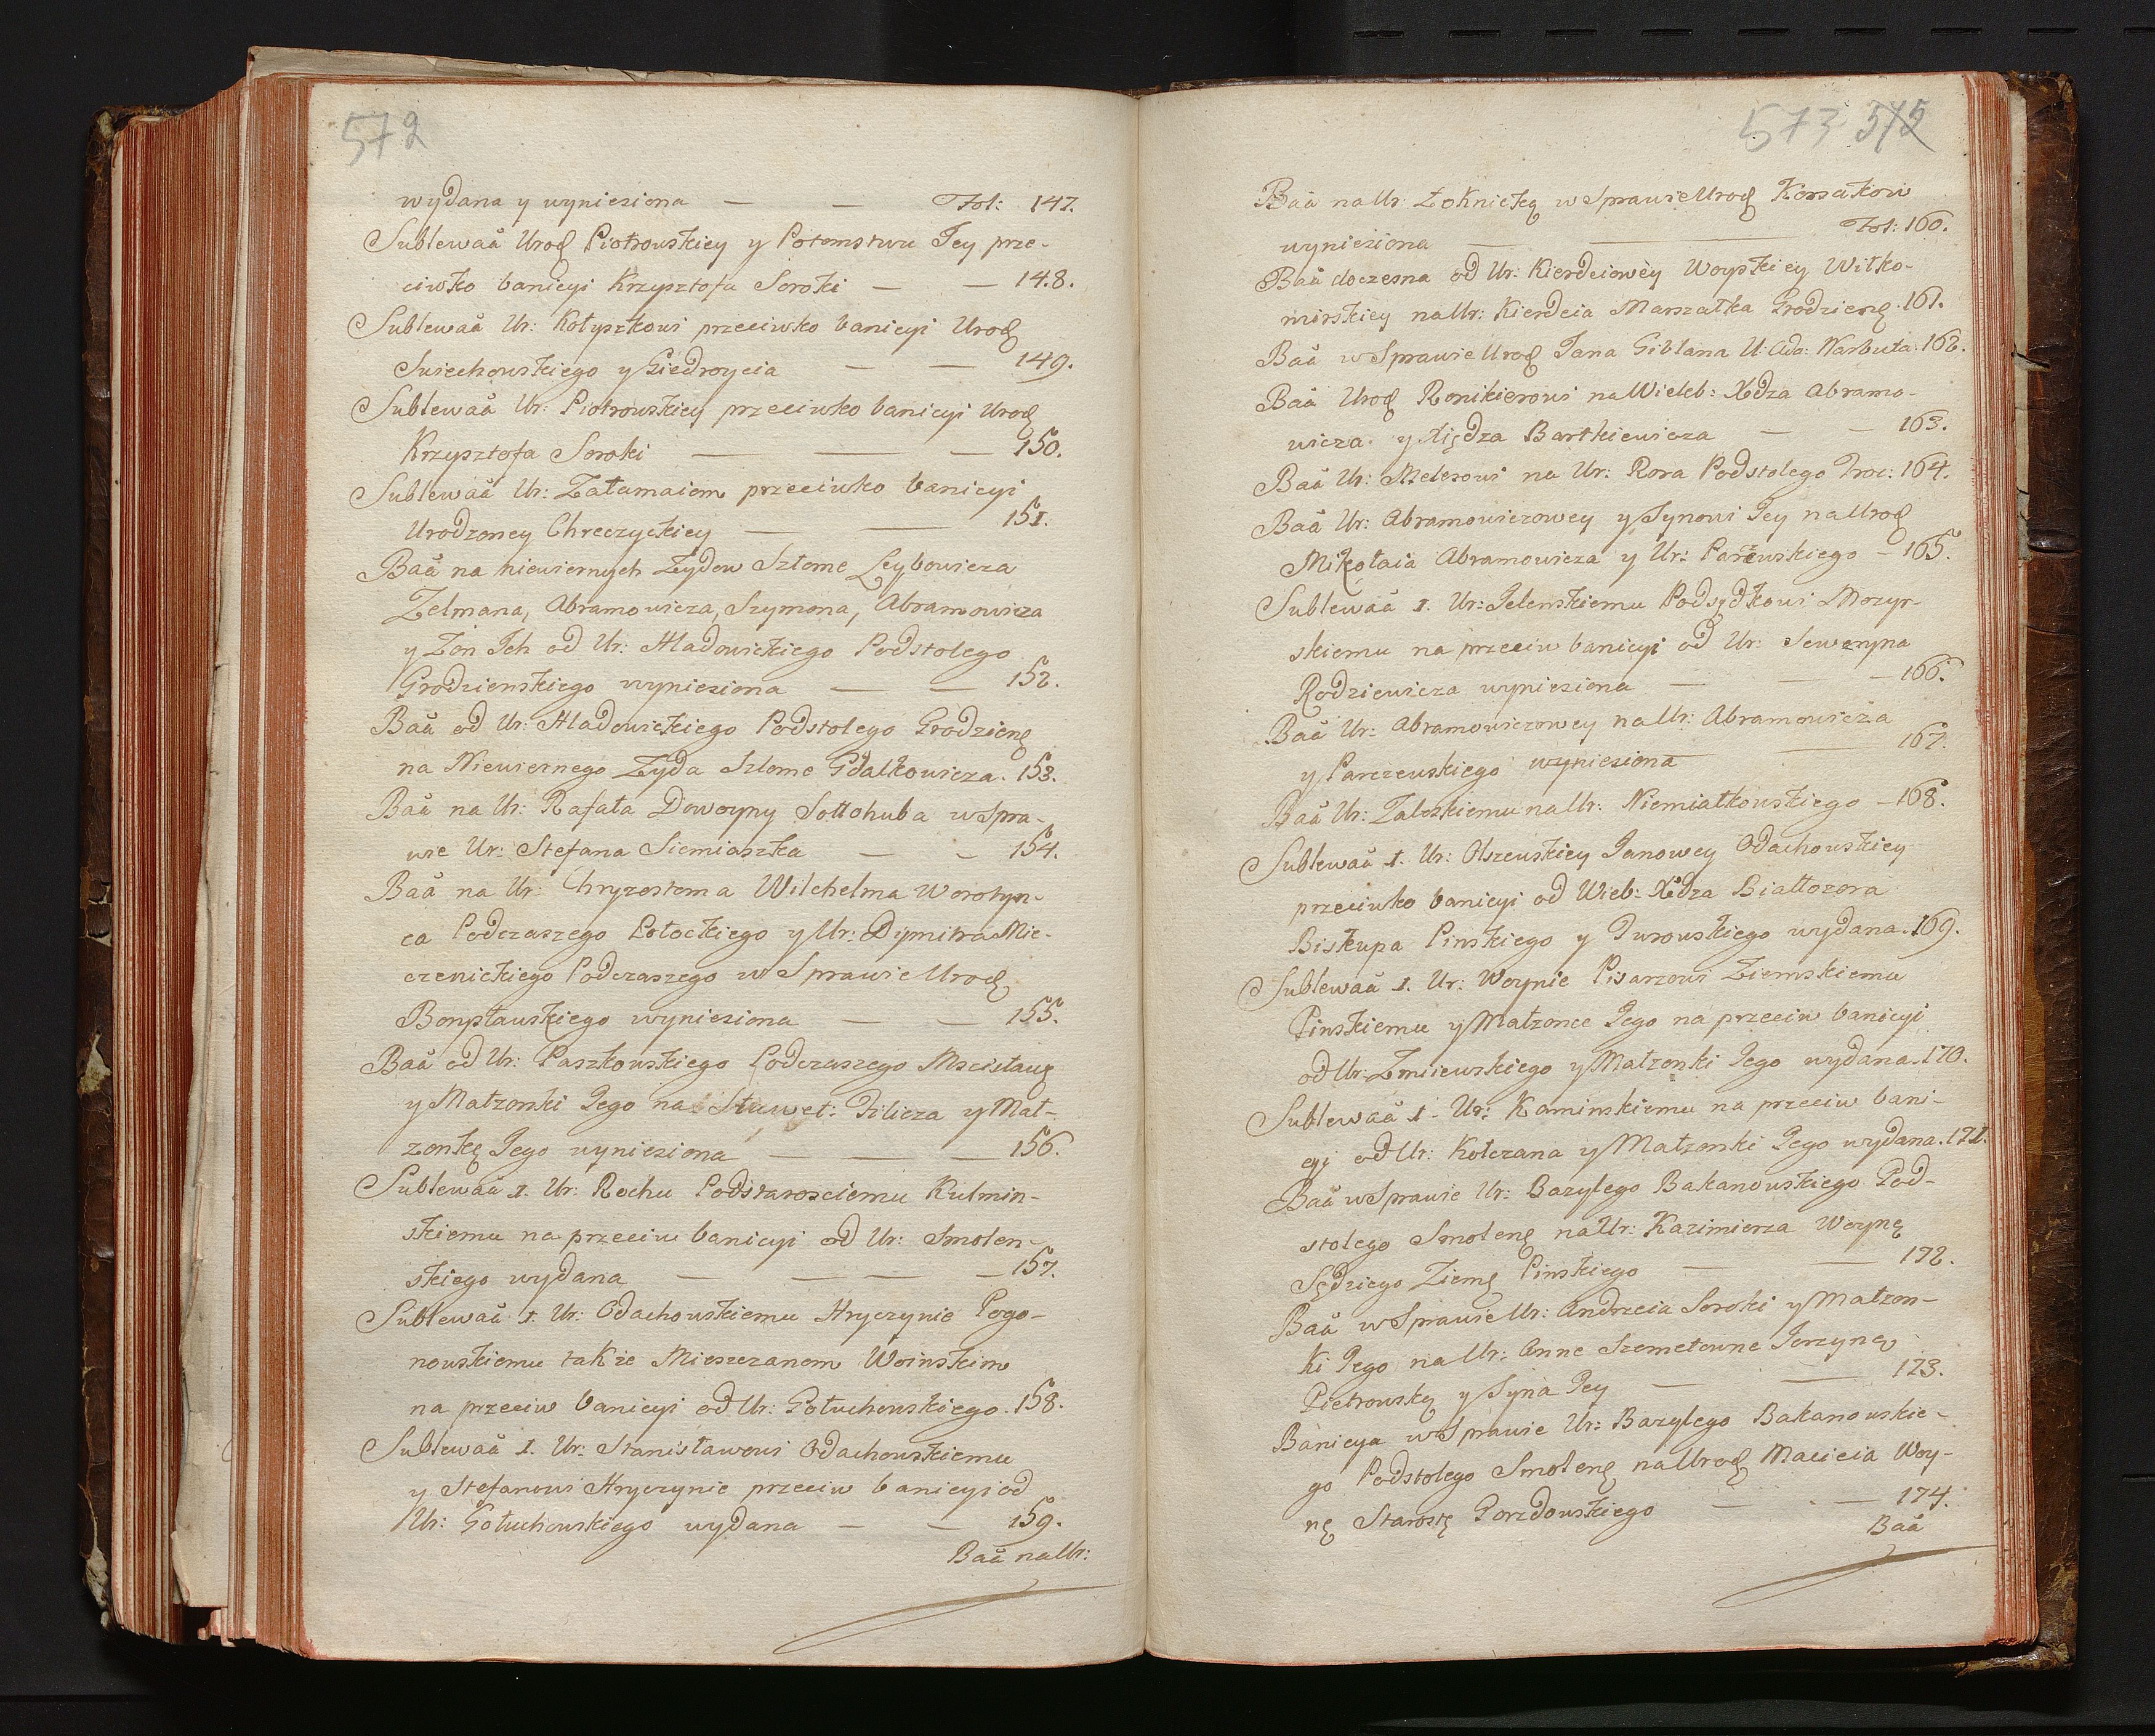 572
wydana y wyniesiona — — Fol: 147.
Sublewaã Urod Piotrowskiey y Potomstwu Jey prze-
ciwko banicyi Krzysztofa Soroki — — 148.
Sublewaã Ur: Kotyszkowi przeciwko banicyi Urod
Swiechowskiego y Giedroycia — — 149.
Sublewaã Ur: Piotrowskiey przeciwko banicyi Urod
Krzysztofa Soroki — — — 150.
Sublewaã Ur: Załamaiem przeciwko banicyi
Urodzoney Chreczyckiey — — 151.
Baã na niewiernych Zydow Szlome Leybowicza
Zelmana, Abramowicza, Szymona, Abramowicza
y Zon Ich od Ur: Hladowickiego Podstolego
Grodzienskiego wyniesiona — — 152.
Baã od Ur: Hladowickiego Podstolego Grodzieng
na Niewiernego Zyda Szlome Gdalkowicza. 153.
Baã na Ur: Rafała Dowoyny Sołłohuba w Spra-
wie Ur: Stefana Siemiaszka — — 154.
Baã na Ur: Chryzostoma Wilchelma Worotyn-
ca Podczaszego Połockiego y Ur: Dymitra Mie-
czenickiego Podczaszego w Sprawie Urod
Bonpławskiego wyniesiona — — 155.
Baã od Ur: Paszkowskiego Podczaszego Mscisławg
y Małzonki Jego na Sławet: Zilicza y Mał-
zonkę Jego wyniesiona — — — 156.
Sublewaã I. Ur: Rochu Podstarosciemu Kulmin-
skiemu na przeciw banicyi od Ur: Smolen-
skiego wydana — — — — 157.
Sublewaã I. Ur: Odachowskiemu Hryczynie Pogo-
nowskiemu także Mieszczanom Woinskim
na przeciw banicyi od Ur: Gołuchowskiego. 158.
Sublewaã I. Ur: Stanisławowi Odachowskiemu
y Stefanowi Hryczynie przeciw banicyi od
Ur: Gołuchowskiego wydana — — 159.
Baã na Ur:
573 572
Baã na Ur: Łoknickę w Sprawie Urod Korsakow
wyniesiona — — Fol: 160.
Baã doczesna od Ur: Kierdeiowey Woyskiey Wiłko-
mirskiey na Ur: Kierdeia Marszałka Grodzieng. 161.
Baã w Sprawie Urod Jana Giblana U: Ada: Narbuta. 162.
Baã Urod Ronikierowi na Wieleb: Xdza Abramo-
wicza y Xiędza Bartkiewicza — — 163.
Baã Ur: Melerowi na Ur: Rora Podstolego Troc: 164.
Baã Ur: Abramowiczowey y Synowi Jey na Urod
Mikołaia Abramowicza y Ur: Parczewskiego — 165.
Sublewaã I. Ur: Jelenskiemu Podsędkowi Mozyr-
skiemu na przeciw banicyi od Ur: Seweryna
Rodziewicza wyniesiona — — — 166.
Baã Ur: Abramowiczowey na Ur: Abramowicza
y Parczewskiego wyniesiona — 167.
Baã Ur: Zaleskiemu na Ur: Niemiatkowskiego — 168.
Sublewaã I. Ur: Olszewskiey Janowey Odachowskiey
przeciwko banicyi od Wieb: Xdza Białłozora
Biskupa Pinskiego y Turowskiego wydana. 169.
Sublewaã I. Ur: Woynie Pisarzowi Ziemskiemu
Pinskiemu y Małzonce Jego na przeciw banicyi
od Ur: Zmiiewskiego y Małzonki Jego wydana. 170.
Sublewaã I. Ur: Kaminskiemu na przeciw bani-
cyi od Ur: Kolczana y Małzonki Jego wydana. 171.
Baã w Sprawie Ur: Bazylego Bakanowskiego Pod-
stolego Smoleng na Ur: Kazimierza Woynę
Sędziego Ziemg Pinskiego — — 172.
Baã w Sprawie Ur: Andrzeia Soroki y Małzon-
ki Jego na Ur: Anne Szemetowne Jerzynę
Pietrowskę y Syna Jey — — 173.
Banicya w Sprawie Ur: Bazylego Bakanowskie-
go Podstolego Smoleng na Urod Macieia Woy-
nę Starostę Gorzdowskiego — — 174.
Baã